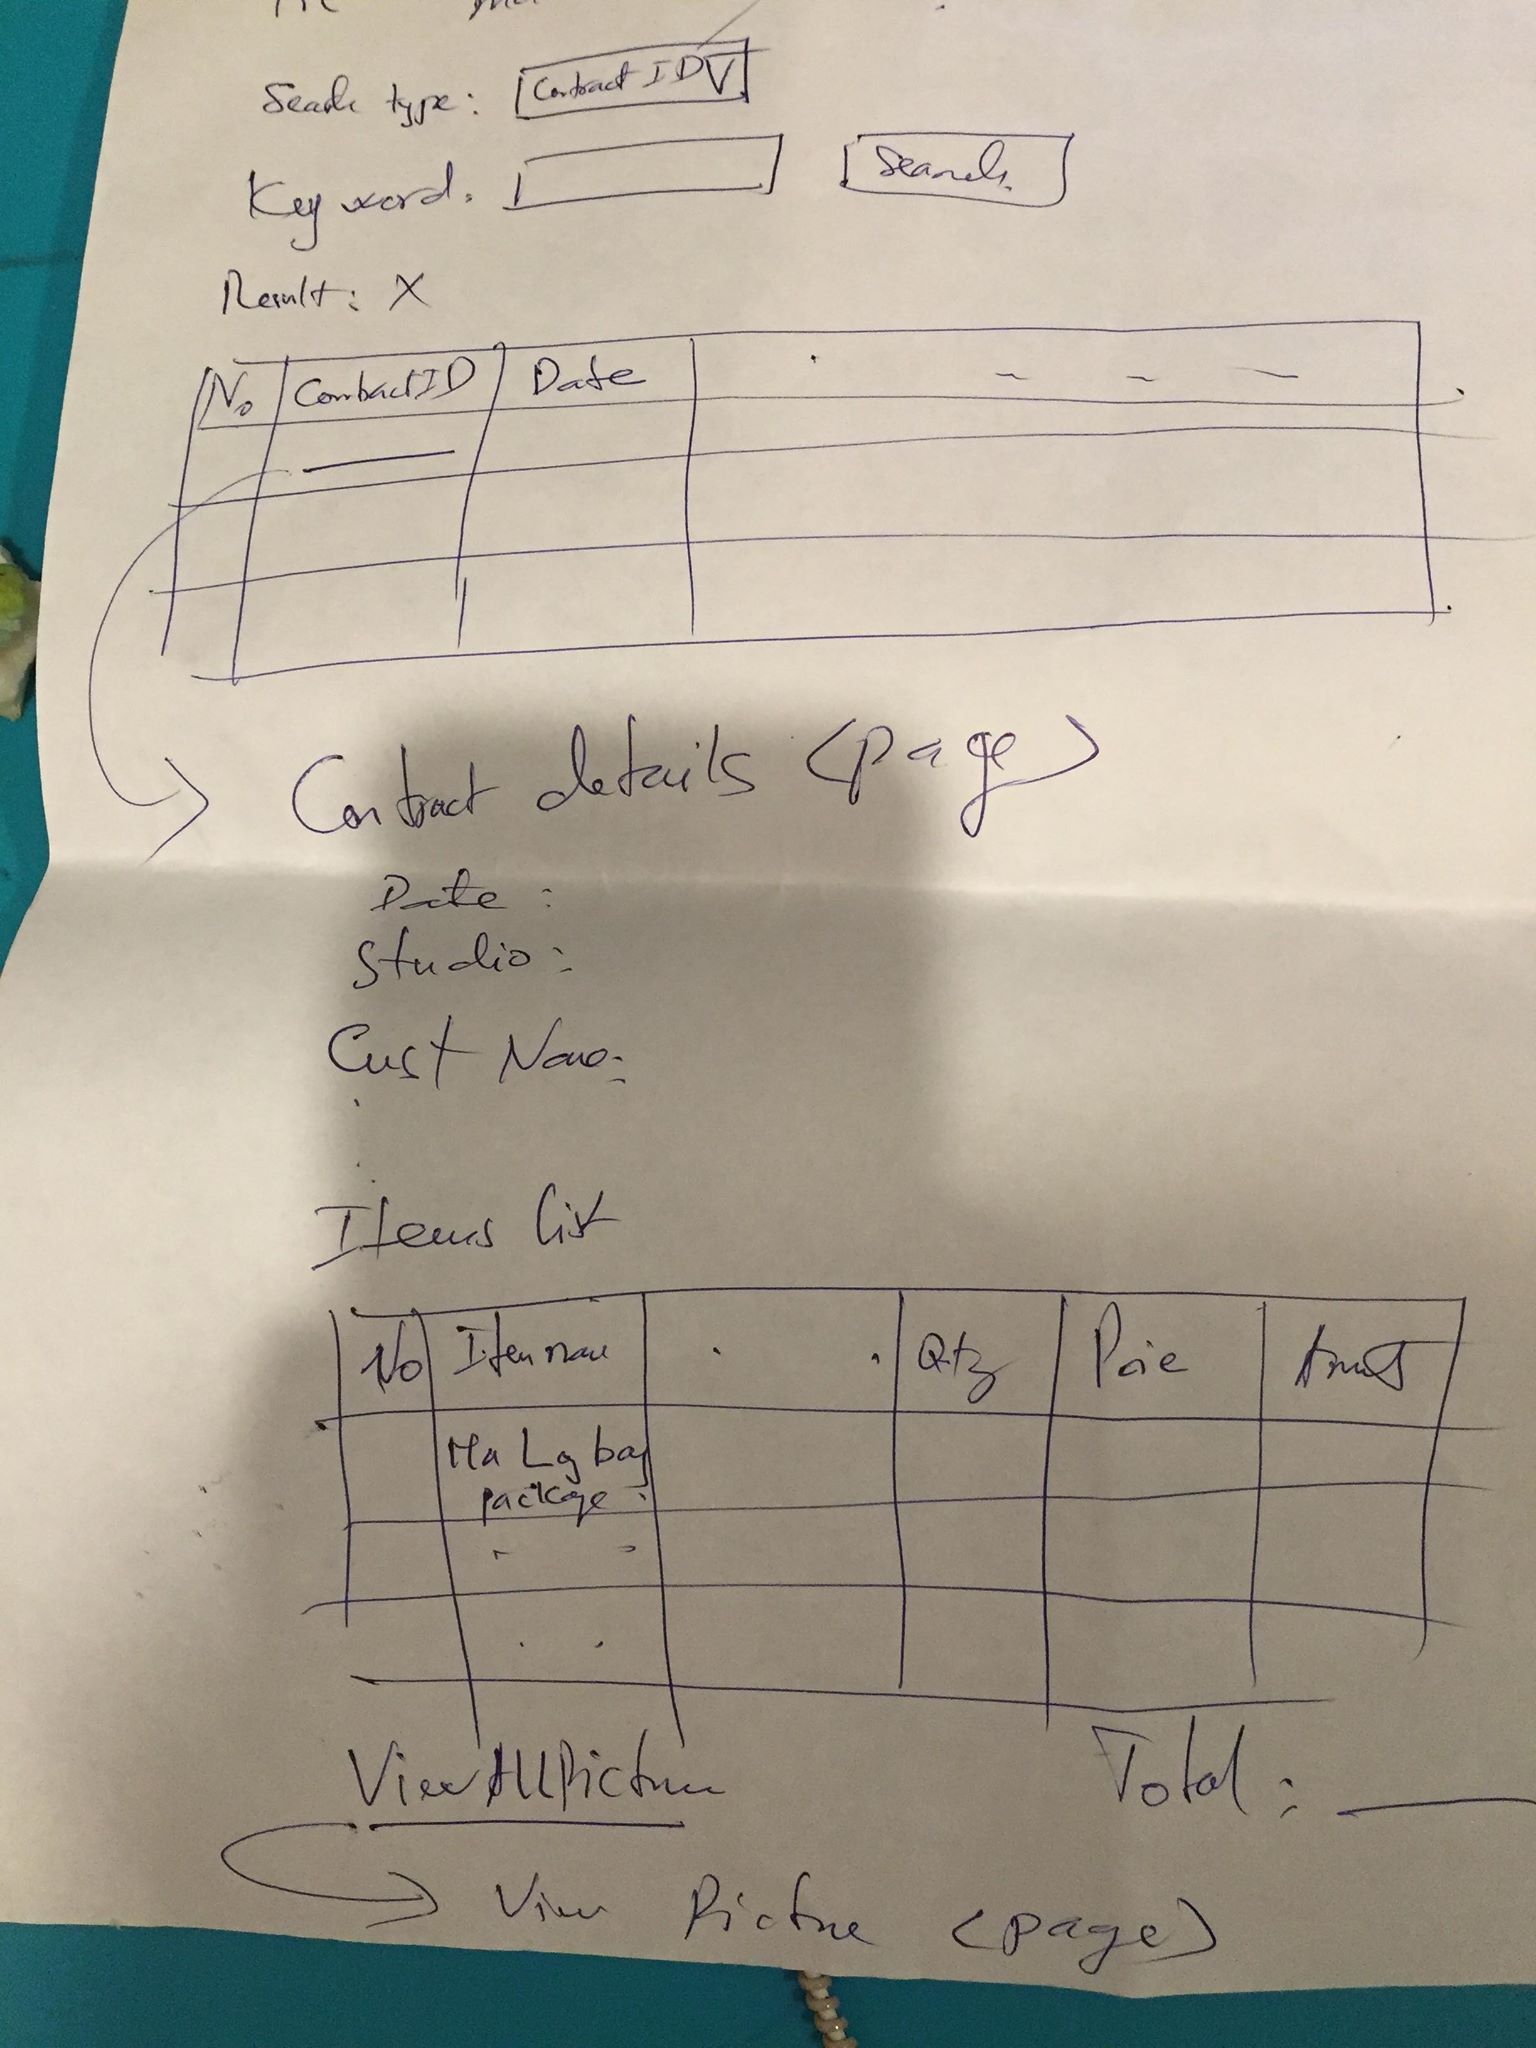 Search type: Contract ID
Key word: Search
Result: X
No Contract ID Date
Contract details (page)
Date :
Studio :
Cust Name:
Items list
No Item name Qty Price Amount
Lg bag
package
View All Picture Total :
View Picture (page)